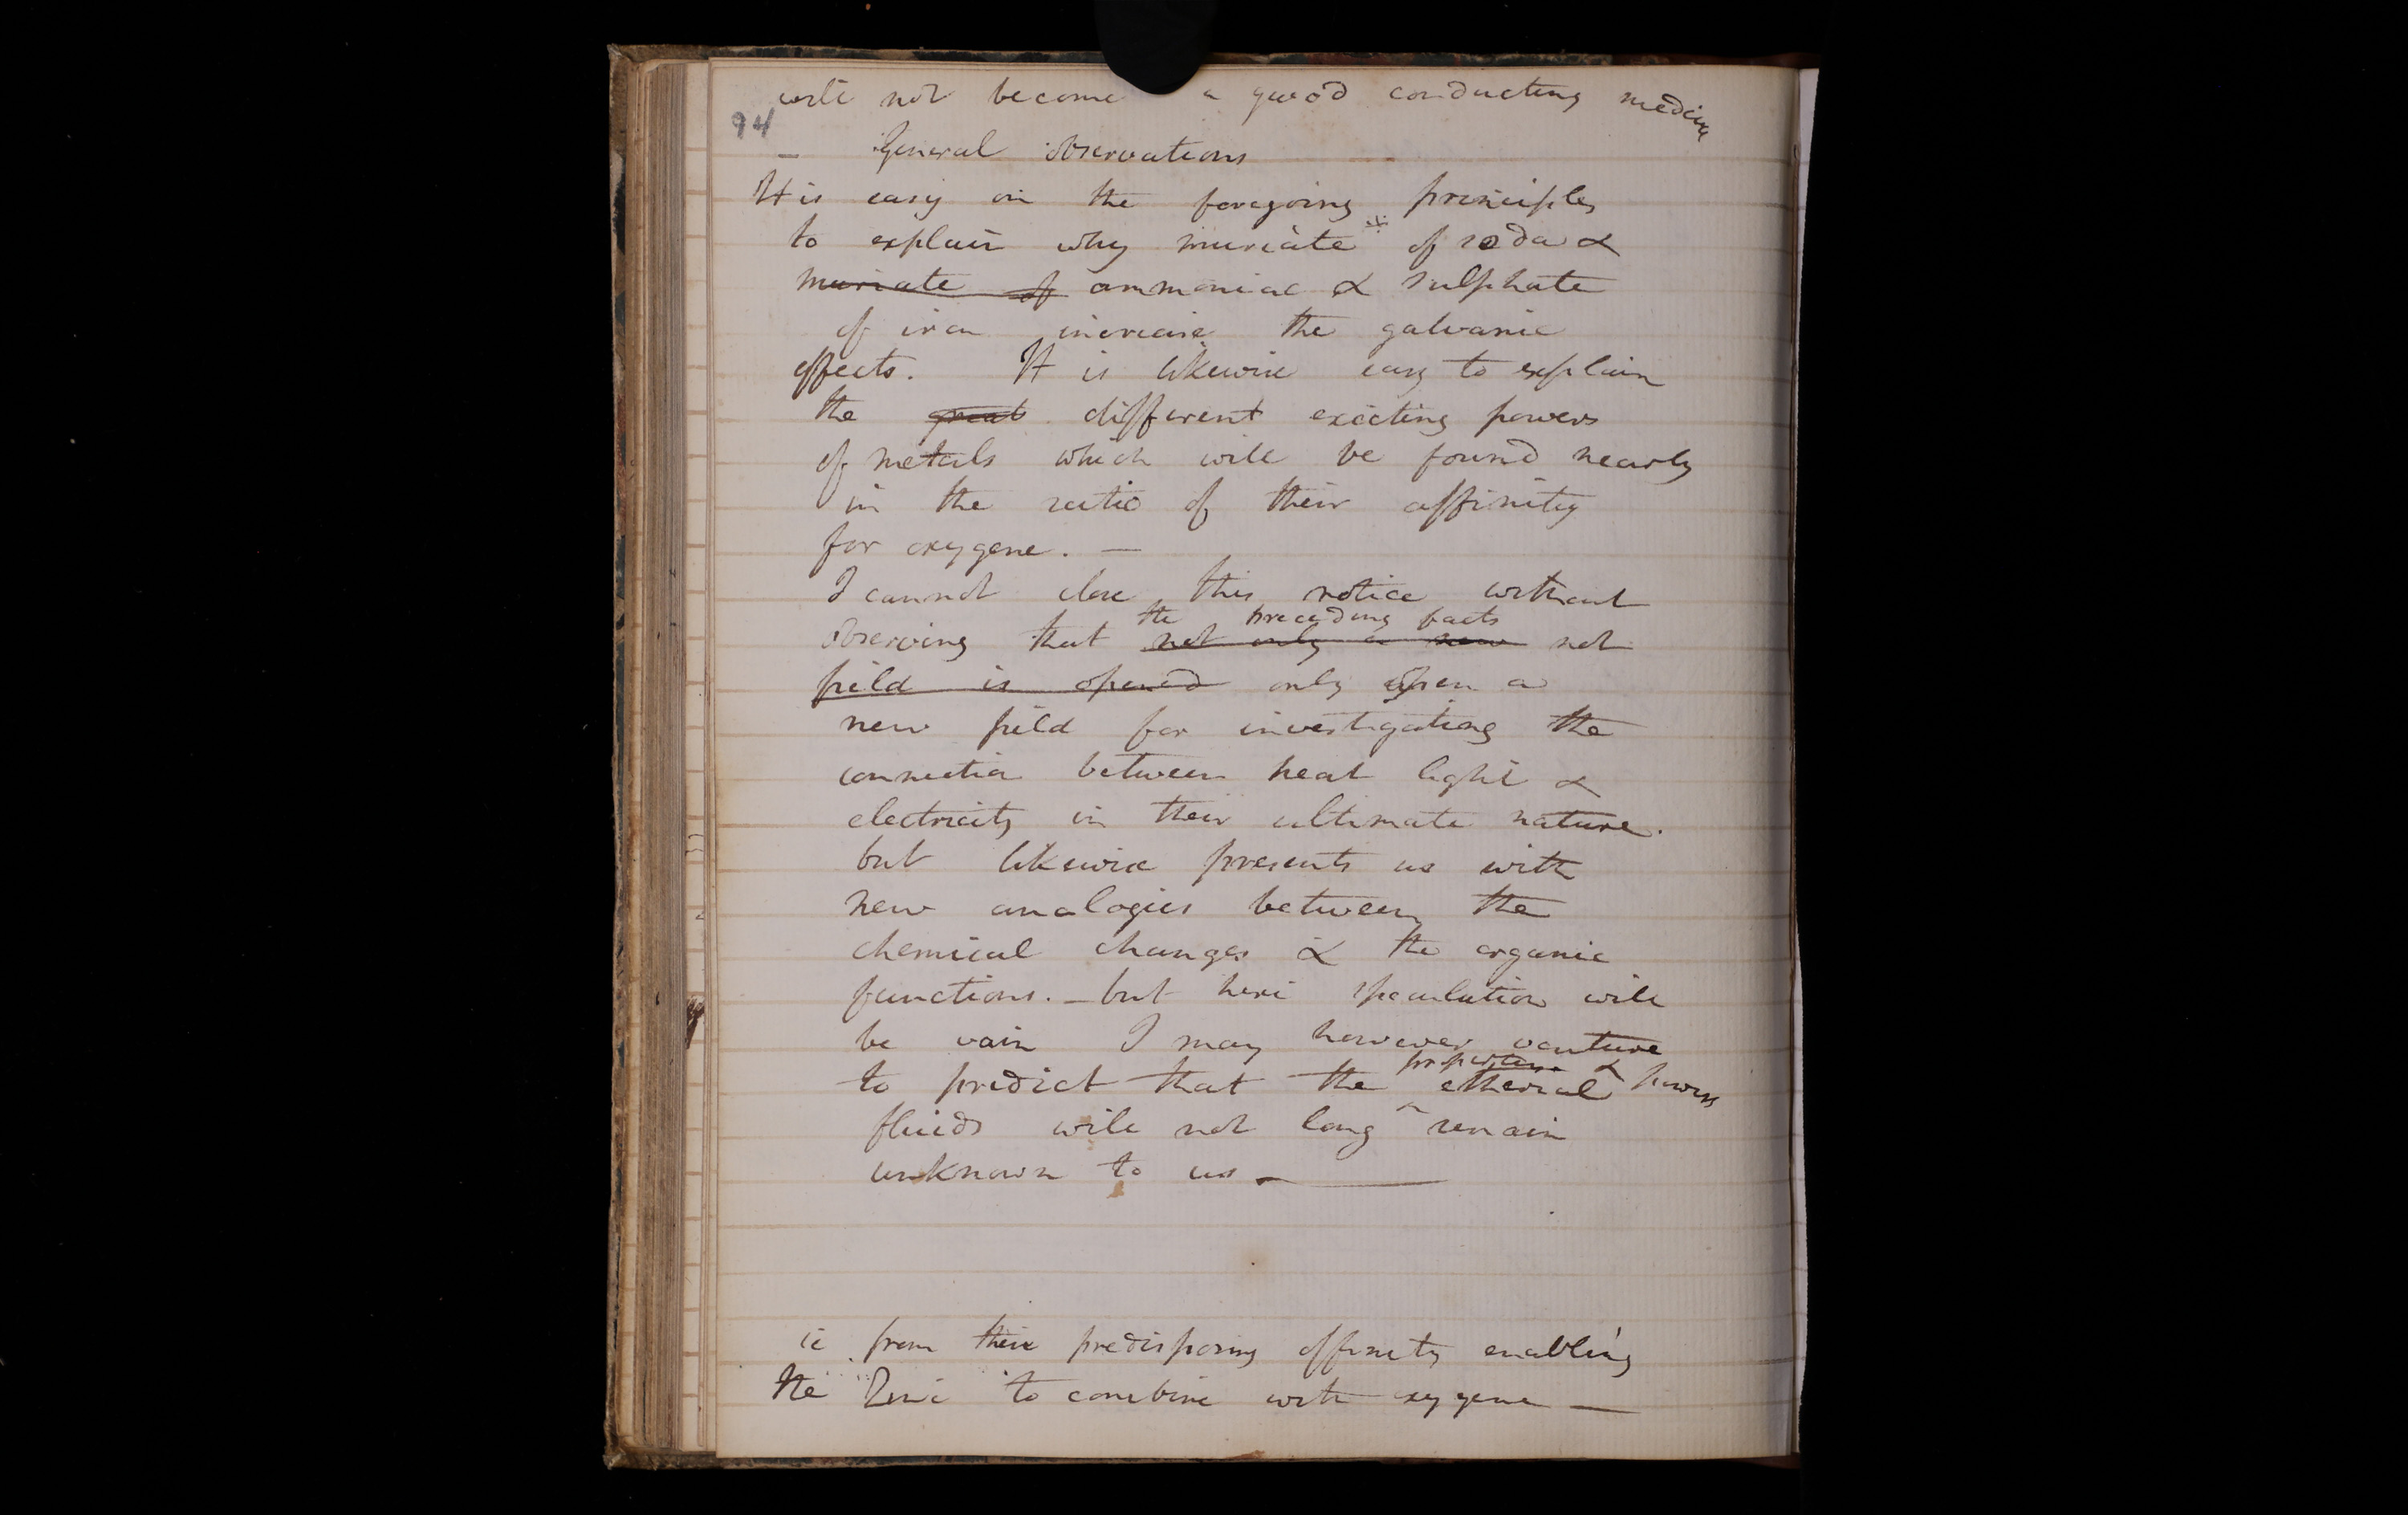 will not become a good conducting medium
94
— General observations
It is easy on the foregoing principles
to explain why muriate of soda &
muriate of ammoniac & sulphate
of iron increase the galvanic
effects. It is likewise easy to explain
the great different exciting powers
of metals which will be found nearly
in the ratio of their affinity
for oxygene. —
I cannot close this notice without
the preceding facts
observing that not only a new not
field is opened only open a
new field for investigating the
connection between heat light &
electricity in their ultimate nature.
but likewise presents us with
new analogies between the
chemical changes & the organic
functions. — but here speculation will
be vain I may however venture
properties & powers
to predict that the etherial
fluids will not long remain
unknown to us. —
ie from their predisposing affinity enabling
the Zinc to combine with oxygene —